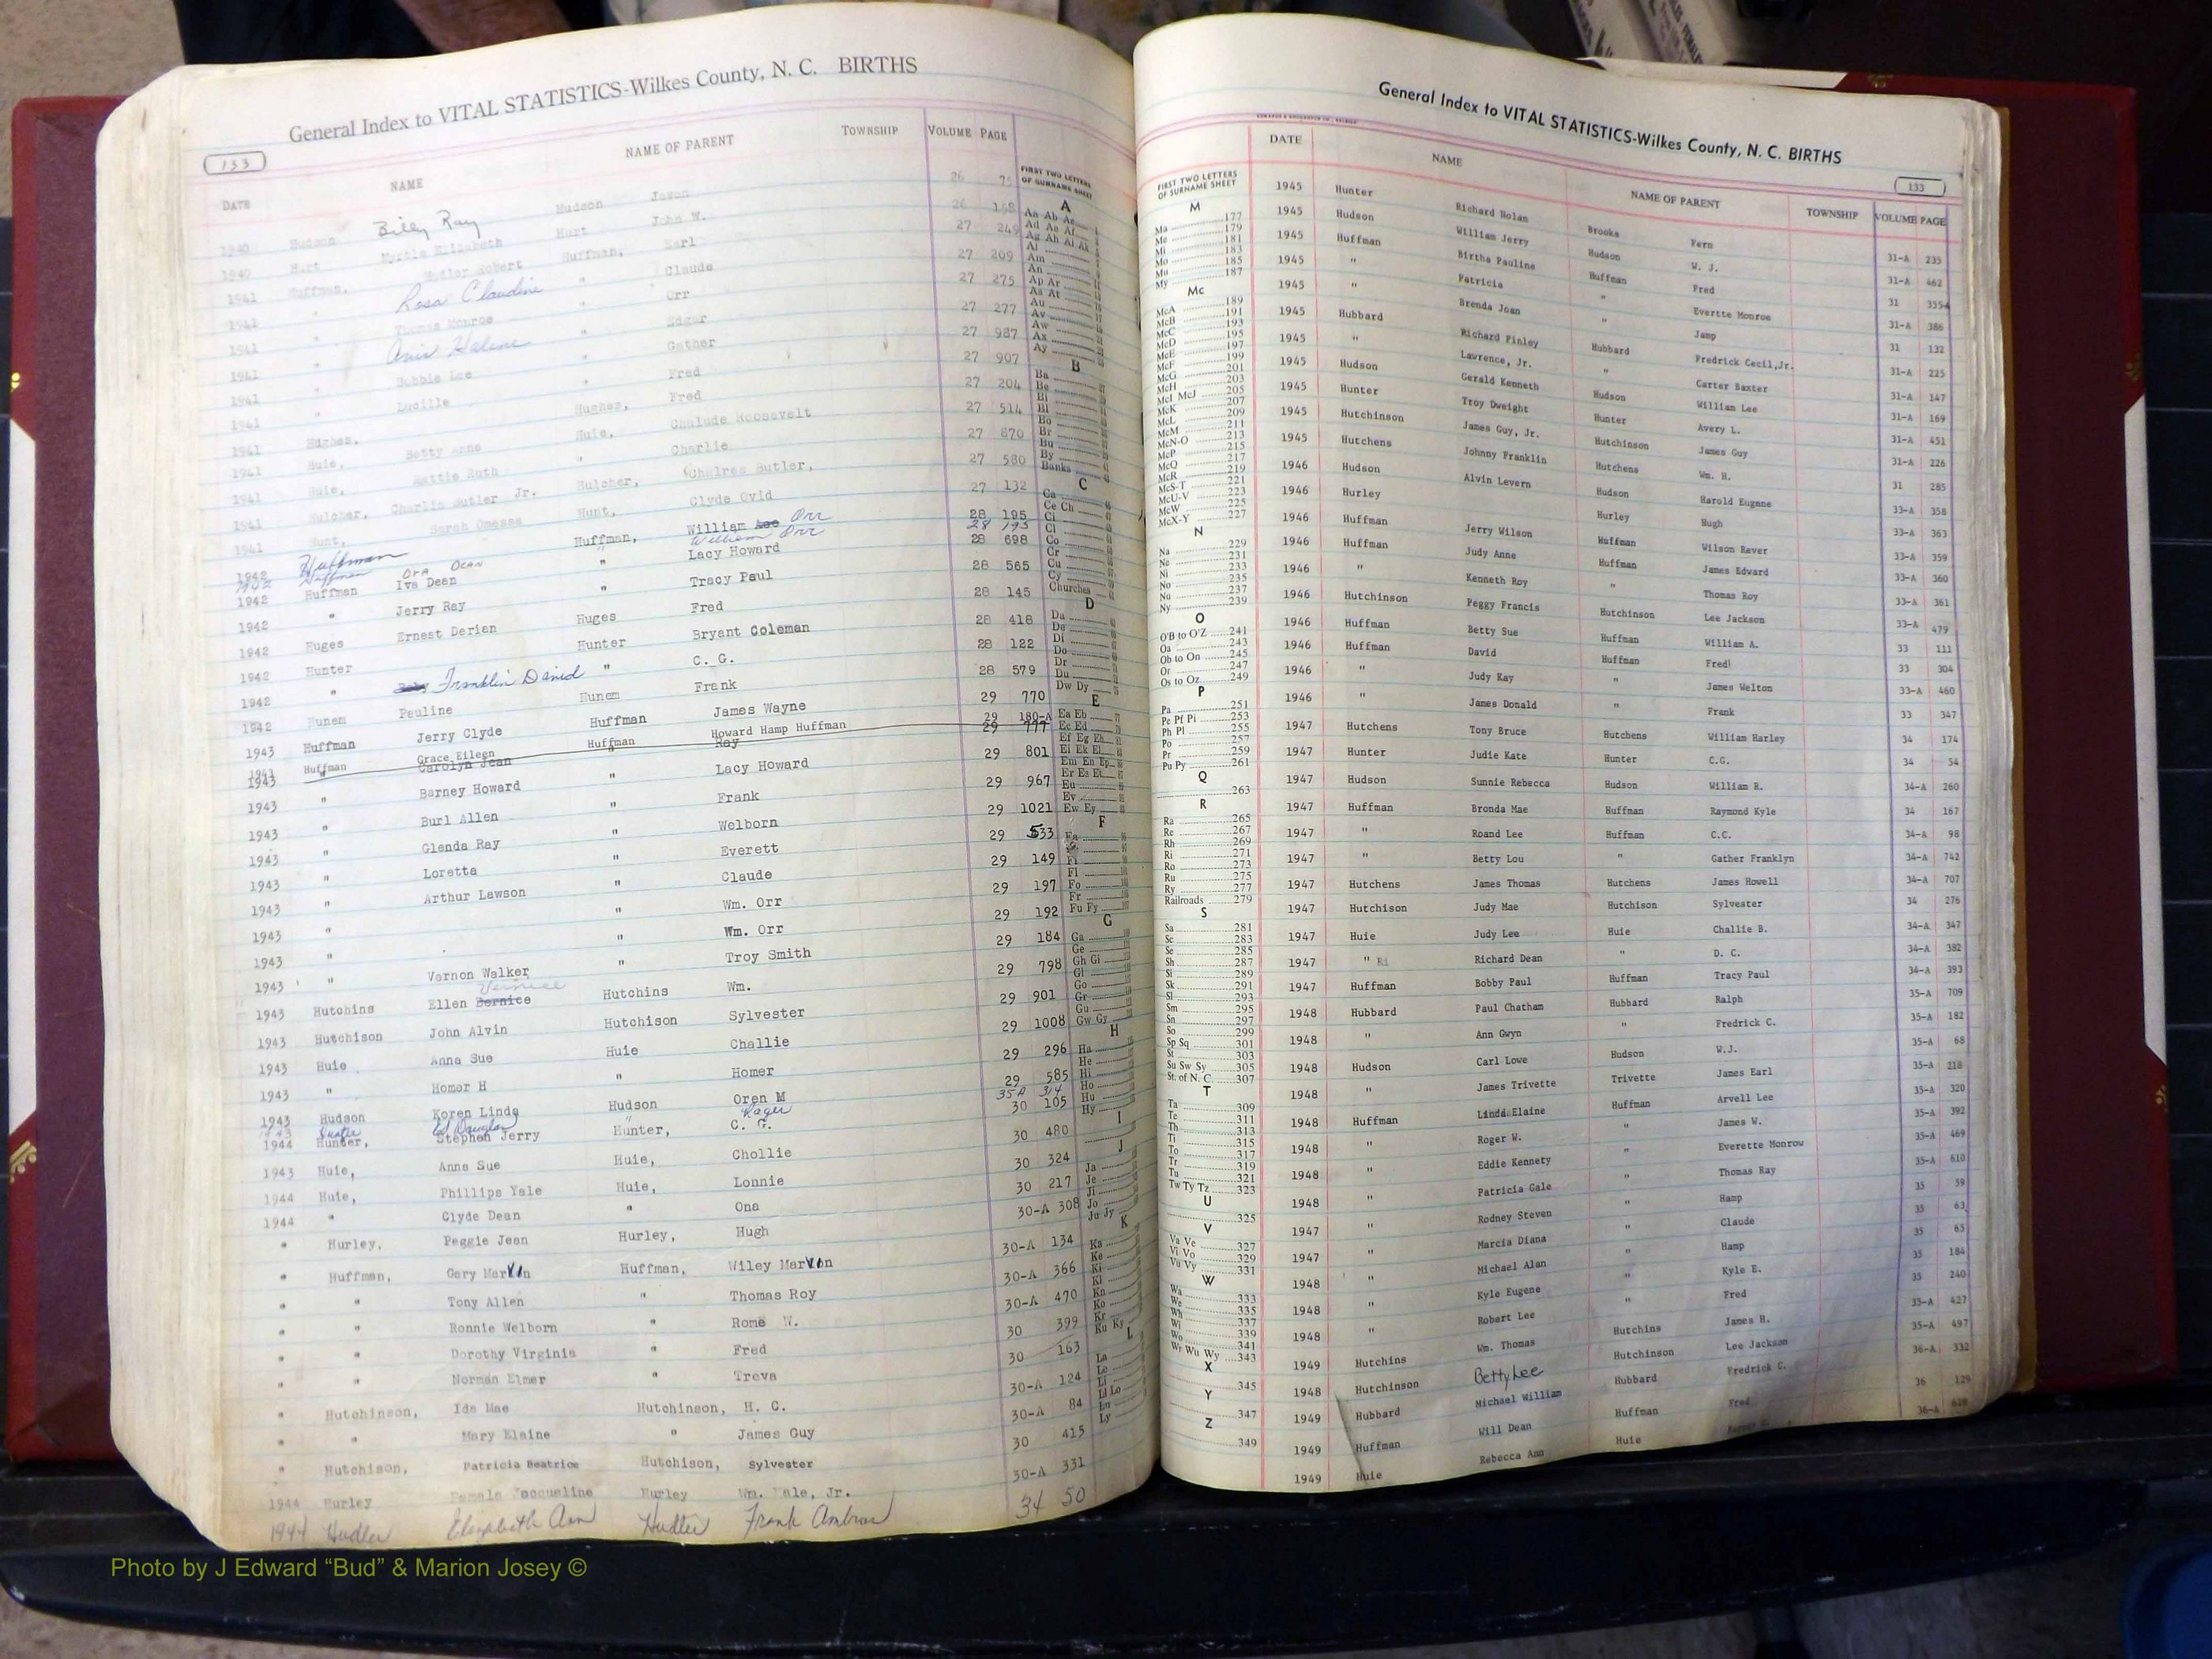 General Index to VITAL STATISTICS-Wilkes County, N. C. BIRTHS
133
DATE NAME NAME OF PARENT TOWNSHIP VOLUME PAGE
1940 Hudson Billy Ray Hudson 26
1940 Hurt Myrtle Elizabeth Hurt John W. 26 158
1941 Huffman, Robert Huffman, Earl 27 249
1941 " Rosa Claudine " Claude 27 209
1941 " Thomas Monroe " Orr 27 275
1941 " " Edgar 27 277
1941 " Bobbie Lee " Gather 27 987
1941 " Lucille " Fred 27 907
1941 Hughes, Betty Anne Hughes, Fred 27 204
1941 Huie, Hattie Ruth Huie, Roosevelt 27 514
1941 Huie, " Charlie 27 870
1941 Hulcher, Charlie Butler Jr. Hulcher, Butler, 27 580
1941 Hunt, Sarah Hunt, Clyde Ovid 27 132
1942 Huffman Huffman, William Orr 28 195
Huffman Ora Dean " William Orr 28 195
1942 Huffman Iva Dean " Lacy Howard 28 698
1942 " Jerry Ray " Tracy Paul 28 565
1942 Huges Ernest Derien Huges Fred 28 145
1942 Hunter Hunter Bryant Coleman 28 418
1942 " Franklin David " C. G. 28 122
1942 Hunem Pauline Hunem Frank 28 579
1943 Huffman Jerry Clyde Huffman James Wayne 29 770
1941 Huffman Grace Eileen Huffman Howard Hamp Huffman 29 180-A
1943 " Carolyn Jean " Ray 29 777
1943 " Barney Howard " Lacy Howard 29 801
1943 " Burl Allen " Frank 29 967
1943 " Glenda Ray " Welborn 29 1021
1943 " Loretta " Everett 29 533
1943 " Arthur Lawson " Claude 29 149
1943 " " Wm. Orr 29 197
1943 " " Wm. Orr 29 192
1943 " Vernon Walker " Troy Smith 29 184
1943 Hutchins Ellen Bernice Vernice Hutchins Wm. 29 798
1943 Hutchison John Alvin Hutchison Sylvester 29 901
1943 Huie Anna Sue Huie Challie 29 1008
1943 " Homer H " Homer 29 296
1943 Hudson Koren Linda Hudson Oren M 29 585
1943 Hunter Ed Douglas " Roger 35A 314
1944 Hunter, Stephen Jerry Hunter, C. G. 30 105
1943 Huie, Anna Sue Huie, Chollie 30 480
1944 Huie, Phillips Yale Huie, Lonnie 30 324
1944 " Clyde Dean " Ona 30 217
" Hurley, Peggie Jean Hurley, Hugh 30-A 308
" Huffman, Gary Marvin Huffman, Wiley Marvin 30-A 134
" " Tony Allen " Thomas Roy 30-A 366
" " Ronnie Welborn " Rome W. 30-A 470
" " Dorothy Virginia " Fred 30 399
" " Norman Elmer " Treva 30 163
" Hutchinson, Ida Mae Hutchinson, H. C. 30-A 124
" " Mary Elaine " James Guy 30-A 84
" Hutchison, Patricia Beatrice Hutchison, Sylvester 30 415
1944 Hurley Female Jocqueline Hurley Wm. Jr. 30-A 331
1944 Hudler Elizabeth Ann Hudler Frank 34 50
FIRST TWO LETTERS OF SURNAME SHEET
A
Aa Ab Ac
Ad Ae Af
Ag Ah Ai Ak
Al
Am
An
Ap Ar
As At
Au
Av
Aw
Ax
Ay
B
Ba
Be
Bi
Bl
Bo
Br
Bu
By
Banks
C
Ca
Ce Ch
Ci
Cl
Co
Cr
Cu
Cy
Churches
D
Da
De
Di
Do
Dr
Du
Dw Dy
E
Ea Eb
Ec Ed
Ef Eg Eh
Ei Ek El
Em En Ep
Er Es Et
Eu
Ev
Ew Ey
F
Fa
Fi
Fl
Fo
Fr
Fu Fy
G
Ga
Ge
Gh Gi
Gl
Go
Gr
Gu
Gw Gy
H
Ha
He
Hi
Ho
Hu
Hy
I
J
Ja
Je
Ji
Jo
Ju Jy
K
Ka
Ke
Ki
Kl
Kn
Ko
Kr
Ku Ky
L
La
Le
Li
Ll Lo
Lu
Ly
General Index to VITAL STATISTICS-Wilkes County, N. C. BIRTHS
133
FIRST TWO LETTERS OF SURNAME SHEET
M
Ma 177
Me 179
Mi 181
Mo 183
Mu 185
My 187
Mc
McA 189
McB 191
McC 193
McD 195
McE 197
McF 199
McG 201
McH 203
McI McJ 205
McK 207
McL 209
McM 211
McN-O 213
McP 215
McQ 217
McR 219
McS-T 221
McU-V 223
McW 225
McX-Y 227
N
Na 229
Ne 231
Ni 233
No 235
Nu 237
Ny 239
O
O'B to O'Z 241
Oa 243
Ob to On 245
Or 247
Os to Oz 249
P
Pa 251
Pe Pf Pi 253
Ph Pl 255
Po 257
Pr 259
Pu Py 261
Q
263
R
Ra 265
Re 267
Rh 269
Ri 271
Ro 273
Ru 275
Ry 277
Railroads 279
S
Sa 281
Sc 283
Se 285
Sh 287
Si 289
Sk 291
Sl 293
Sm 295
Sn 297
So 299
Sp Sq 301
St 303
Su Sw Sy 305
St. of N. C. 307
T
Ta 309
Te 311
Th 313
Ti 315
To 317
Tr 319
Tu 321
Tw Ty Tz 323
U
325
V
Va Ve 327
Vi Vo 329
Vu Vy 331
W
Wa 333
We 335
Wh 337
Wi 339
Wo 341
Wr Wu Wy 343
X
345
Y
347
Z
349
DATE NAME NAME OF PARENT TOWNSHIP VOLUME PAGE
1945 Hunter Richard Nolan Brooks Fern 31-A 235
1945 Hudson William Jerry Hudson W. J. 31-A 462
1945 Huffman Birtha Pauline Huffman Fred 31 335-A
1945 " Patricia " Evertte Monroe 31-A 386
1945 " Brenda Joan " Jamp 31 132
1945 Hubbard Richard Finley Hubbard Fredrick Cecil,Jr. 31-A 225
1945 " Lawrence, Jr. " Carter Baxter 31-A 147
1945 Hudson Gerald Kenneth Hudson William Lee 31-A 169
1945 Hunter Troy Dweight Hunter Avery L. 31-A 451
1945 Hutchinson James Guy, Jr. Hutchinson James Guy 31-A 226
1945 Hutchens Johnny Franklin Hutchens Wm. H. 31 285
1946 Hudson Alvin Levern Hudson Harold Eugene 33-A 358
1946 Hurley Hurley Hugh 33-A 363
1946 Huffman Jerry Wilson Huffman Wilson Rever 33-A 359
1946 Huffman Judy Anne Huffman James Edward 33-A 360
1946 " Kenneth Roy " Thomas Roy 33-A 361
1946 Hutchinson Peggy Francis Hutchinson Lee Jackson 33-A 479
1946 Huffman Betty Sue Huffman William A. 33 111
1946 Huffman David Huffman Fred 33 304
1946 " Judy Kay " James Welton 33-A 460
1946 " James Donald " Frank 33 347
1947 Hutchens Tony Bruce Hutchens William Harley 34 174
1947 Hunter Judie Kate Hunter C.G. 34 54
1947 Hudson Sunnie Rebecca Hudson William R. 34-A 260
1947 Huffman Bronda Mae Huffman Raymond Kyle 34 167
1947 " Roand Lee Huffman C.C. 34-A 98
1947 " Betty Lou " Gather Franklyn 34-A 742
1947 Hutchens James Thomas Hutchens James Howell 34-A 707
1947 Hutchison Judy Mae Hutchison Sylvester 34 276
1947 Huie Judy Lee Huie Challie B. 34-A 347
1947 " Ri Richard Dean " D. C. 34-A 382
1947 Huffman Bobby Paul Huffman Tracy Paul 34-A 393
1948 Hubbard Paul Chatham Hubbard Ralph 35-A 709
1948 " Ann Gwyn " Fredrick C. 35-A 182
1948 Hudson Carl Lowe Hudson W.J. 35-A 68
1948 " James Trivette Trivette James Earl 35-A 218
1948 Huffman Linda Elaine Huffman Arvell Lee 35-A 320
1948 " Roger W. " James W. 35-A 392
1948 " Eddie Kennety " Everette Monrow 35-A 469
1948 " Patricia Gale " Thomas Ray 35-A 610
1947 " Rodney Steven " Hamp 35 59
1947 " Marcia Diana " Claude 35 63
1948 " Michael Alan " Hamp 35 65
1948 " Kyle Eugene " Kyle E. 35 184
1948 " Robert Lee " Fred 35 240
1949 Hutchins Wm. Thomas Hutchins James H. 35-A 427
1948 Hutchinson Betty Lee Hutchinson Lee Jackson 35-A 497
1949 Hubbard Michael William Hubbard Fredrick C. 36-A 332
1949 Huffman Will Dean Huffman Fred 36 129
1949 Huie Rebecca Ann Huie 36-A
Photo by J Edward “Bud” & Marion Josey ©